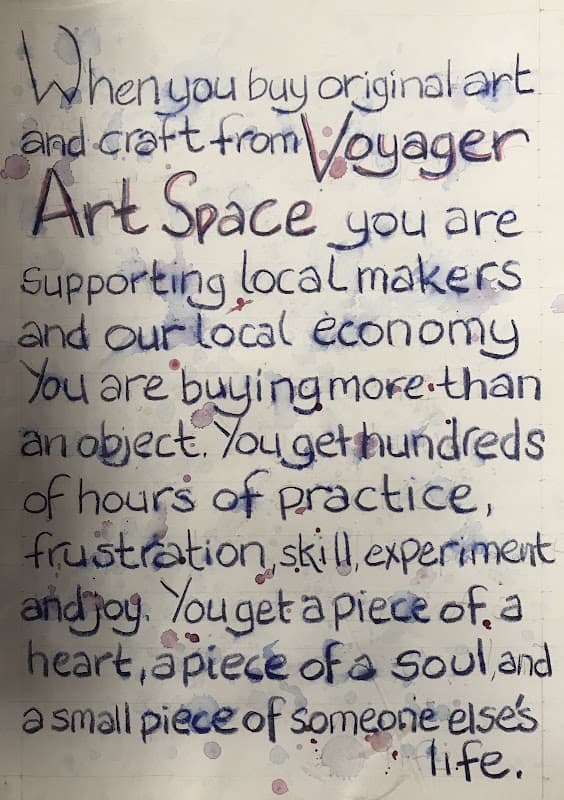 When you buy original art
and craft from Voyager
Art Space you are
supporting local makers
and our local economy
You are buying more than
an object. You get hundreds
of hours of practice,
frustration, skill, experiment
and joy. You get a piece of a
heart, a piece of a soul, and
a small piece of someone else's
life.